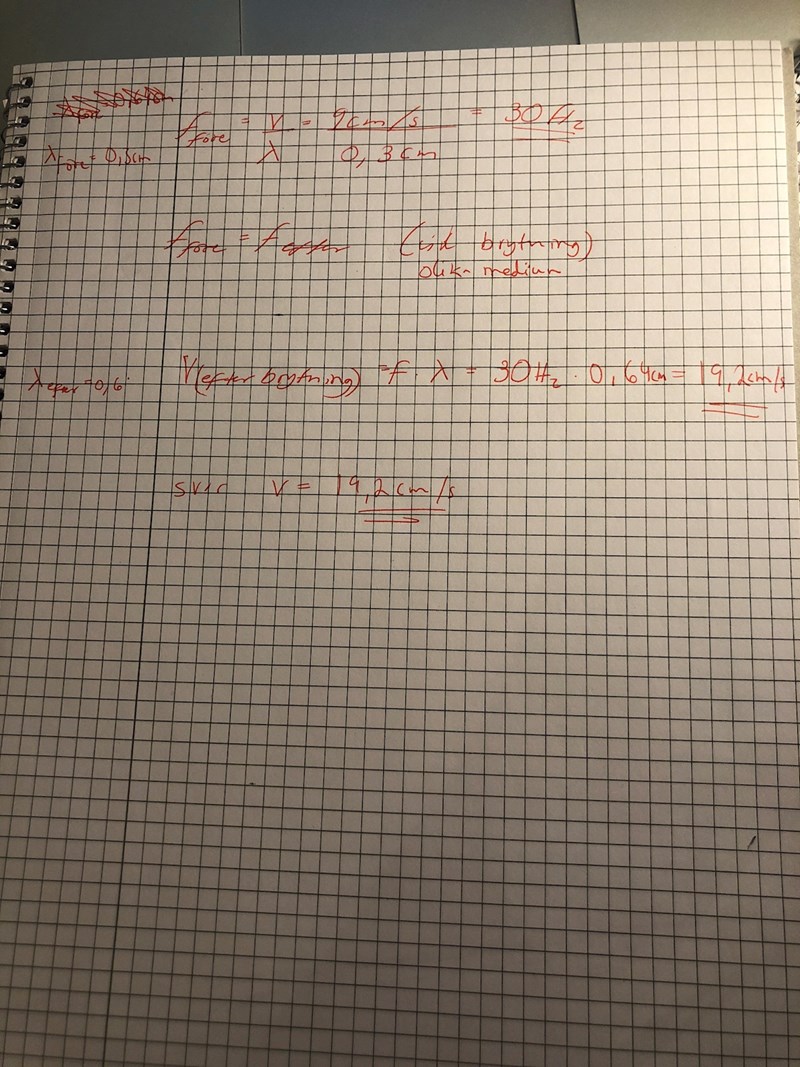 f före = v/λ = 9cm/s / 0,3cm = 30Hz
λ före = 0,3cm
f före = f efter (vid brytning)
olika medium
λ efter = 0,6
V(efter brytning) = f · λ = 30Hz · 0,64cm = 19,2cm/s
svar v = 19,2cm/s